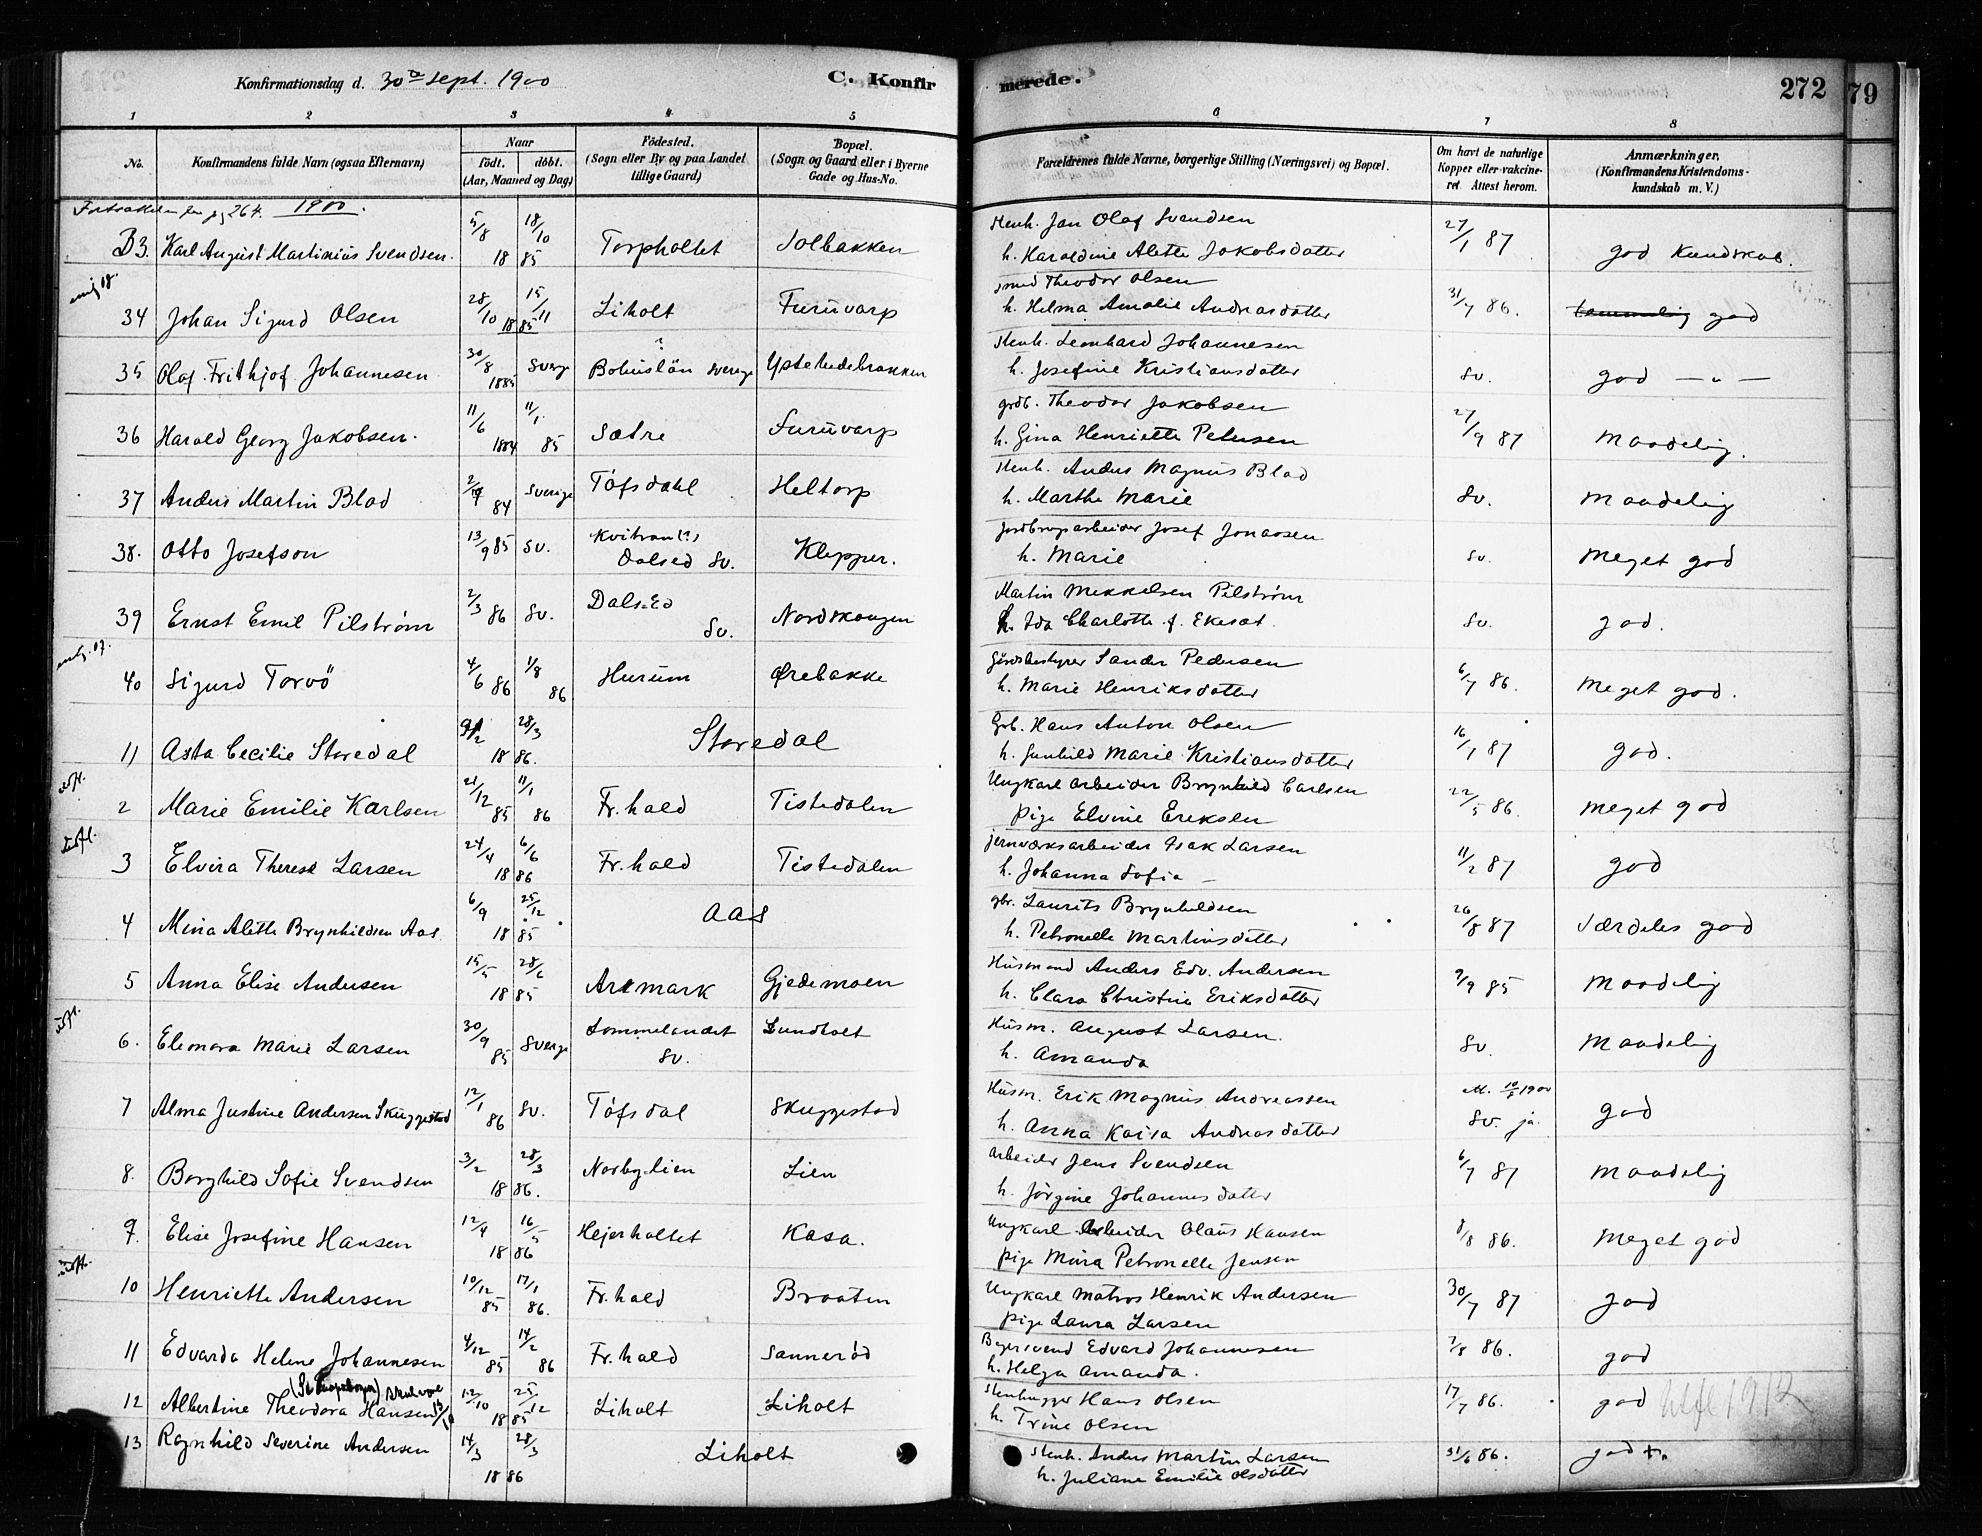 Konfirmationsdag d. 30te Sept. 1900 C. Konfirmerede. 272 79
1 2 3 4 5 6 7 8
No. Konfirmandens fulde Navn (ogsaa Efternavn) Naar födt. döbt. (Aar, Maaned og Dag) Födested. (Sogn eller By og paa Landet tillige Gaard) Bopæl. (Sogn og Gaard eller i Byerne Gade og Hus-No. Forældrenes fulde Navne, borgerlige Stilling (Næringsvei) og Bopæl. Om havt de naturlige Kopper eller vakcineret. Attest herom. Anmærkninger. (Konfirmandens Kristendomskundskab m. V.)
264. 1900.
5/8 18/10 Stenh. Jan Olaf Svendsen 27/1 87
33. Karl August Martinius Svendsen. 18 85 Torpholtet Solbakken h. Karoldine Alette Jakobsdatter god Kundskab.
28/10 15/11 smed Theodor Olsen 31/7 86.
34 Johan Sigurd Olsen 18 85 Liholt Furuvarp h. Helma Amalie Andreasdatter temmelig god
30/8 ? Stenh. Leonhard Johannesen
35 Olaf Frithjof Johannesen 1885 Sverige Bohuslän Sverige Ystehedebrakken h. Josefine Kristiansdatter Sv. god — " —
11/6 11/1 grdb. Theodor Jakobsen 27/9 87
36 Harald Georg Jakobsen. 1884 85 Sætre Furuvarp h. Gina Henriette Petersen Maadelig.
Stenh. Anders Magnus Blad
37 Anders Martin Blad 84 Sverige Töfsdahl Heltorp h. Marthe Marie Sv. Maadelig
13/9 85 Jordbrugsarbeider Josef Jonassen
38. Otto Josefson Sv. Dalsed Sv. Klepper. h. Marie Sv. Meget god
2/3 86 Martin Mikkelsen Pilström
39 Ernst Emil Pilström Sv. Dals-Ed Sv. Nordskougen h. Ida Charlotte f. Sv. god.
4/6 86 1/8 86 Gårdsbestyrer Sander Pedersen 6/7 86.
40 Sigurd Torvö Hurum Ørebakke h. Marie Henriksdatter Meget god.
28/3 Grb. Hans Anton Olsen 16/1 87
1) Asta Cecilie Storedal 18 86. Storedal h. Gunhild Marie Kristiansdatter god.
udfl. 21/12 85 11/1 86 Ungkarl Arbeider Brynhild Carlsen 22/5 86.
2 Marie Emilie Karlsen Fr.hald Tistedalen pige Elvine Eriksen meget god
udfl. 24/4 6/6 jernværksarbeider Isak Larsen 11/2 87
3 Elvira Therese Larsen 18 86 Fr.hald Tistedalen h. Johanna Sofia — god
6/9 25/12 gbr. Laurits Brynhildsen 26/8 87
4 Mina Alette Brynhildsen Aas. 18 85 Aas h. Petronelle Martinsdatter Særdeles god
15/5 28/6 Husmand Anders Edv. Andersen 9/9 85
5 Anna Elise Andersen 18 85 Aremark Gjedemoen h. Clara Christine Eriksdatter Maadelig
udfl. 30/9 85 Husm. August Larsen.
6. Eleonora Marie Larsen Sverige Lommelandet Sv. Lundholt h. Amanda Sv. Maadelig
12/1 86 Husm. Erik Magnus Andreassen
7 Alma Justine Andersen Skuggestad Sv. Töfsdal Skuggestad h. Anna Kaisa Andreasdatter Sv. ja. god
3/2 28/3 Arbeider Jens Svendsen 6/7 87
8. Borghild Sofie Svendsen 18 86. Norbylien Lien h. Jörgine Johannesdatter Maadelig
12/4 16/5 Ungkarl Arbeider Olaus Hansen 8/8 86.
9. Elise Josefine Hansen 18 86 Hejerholtet Kasa. pige Mina Petronelle Jensen Meget god
10/12 85 17/1 86. Ungkarl Matros Henrik Andersen 30/7 87
10 Henriette Andersen Fr.hald Braaten pige Laura Larsen god
4/12 85 14/2 86 Bagersvend Edvard Johannesen 7/8 86.
11 Edvarda Helene Johannesen Fr.hald Sannerød h. Helga Amanda. god
12/10 25/12 Stenhugger Hans Olsen 17/7 86.
12 Albertine Theodora Hansen 18 85 Liholt Liholt h. Trine Olsen god 1912
14/3 28/3 Stenh. Anders Martin Larsen 31/6 86.
13 Ragnhild Severine Andersen 18 86 Liholt h. Juliane Emilie Olsdatter god +.